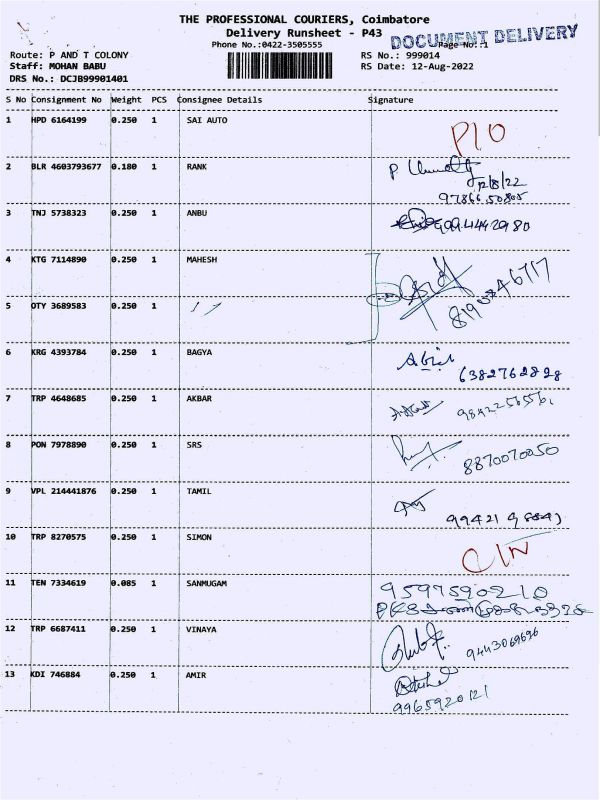 THE PROFESSIONAL COURIERS, Coimbatore
Delivery Runsheet - P43
DOCUMENT DELIVERY
Phone No.:0422-3505555
Page No.:1
Route: P AND T COLONY
RS No.: 999014
Staff: MOHAN BABU
RS Date: 12-Aug-2022
DRS No.: DCJB99901401
S No Consignment No Weight PCS Consignee Details Signature
1 HPD 6164199 0.250 1 SAI AUTO
2 BLR 4603793677 0.180 1 RANK P
12/8/22
9786650805
3 TNJ 5738323 0.250 1 ANBU
4 KTG 7114890 0.250 1 MAHESH
5 OTY 3689583 0.250 1
6 KRG 4393784 0.250 1 BAGYA
6382762828
7 TRP 4648685 0.250 1 AKBAR
8 PON 7978890 0.250 1 SRS
8870070050
9 VPL 214441876 0.250 1 TAMIL
10 TRP 8270575 0.250 1 SIMON
11 TEN 7334619 0.085 1 SANMUGAM
9597590210
12 TRP 6687411 0.250 1 VINAYA
9443069696
13 KDI 746884 0.250 1 AMIR
9965920121